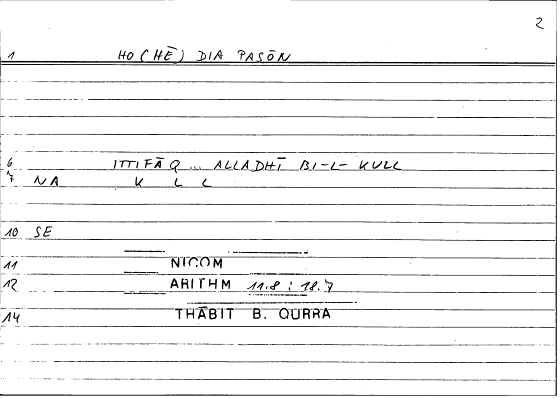 2
1 HO (HĒ) DIA PASŌN
6 ITTIFĀQ ... ALLADHĪ BI-L-KULL
7 NA K L L
10 SE
11 NICOM
12 ARITHM 11.8 : 18.7
14 THĀBIT B. QURRA